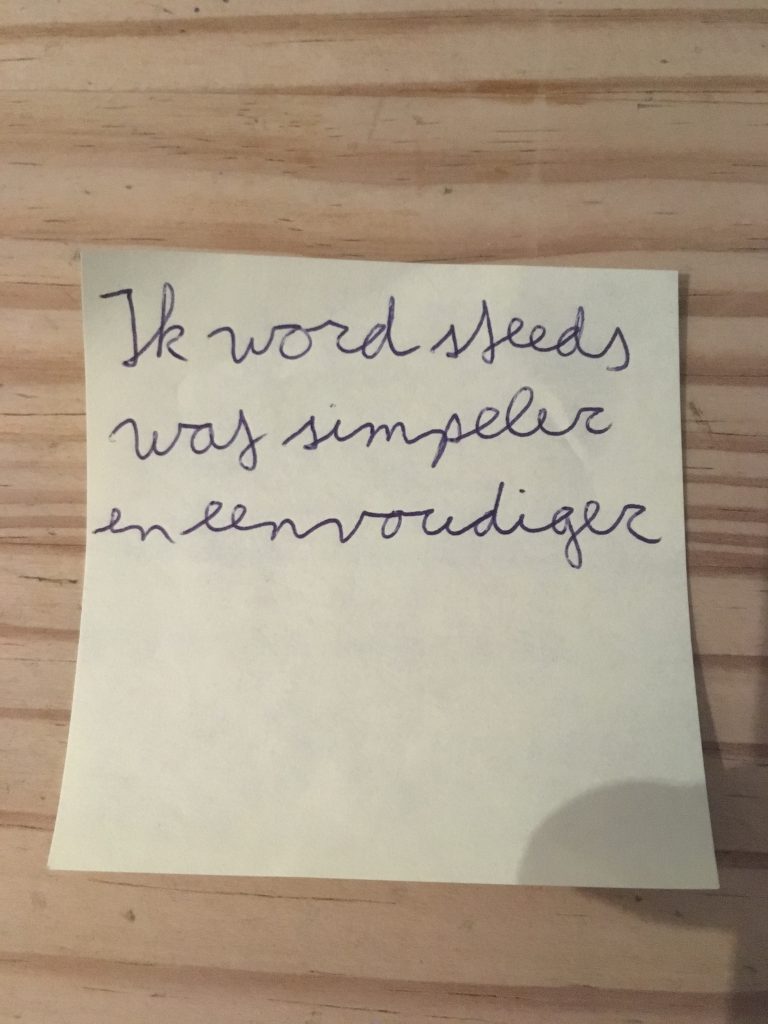 Ik word steeds
wat simpeler
en eenvoudiger